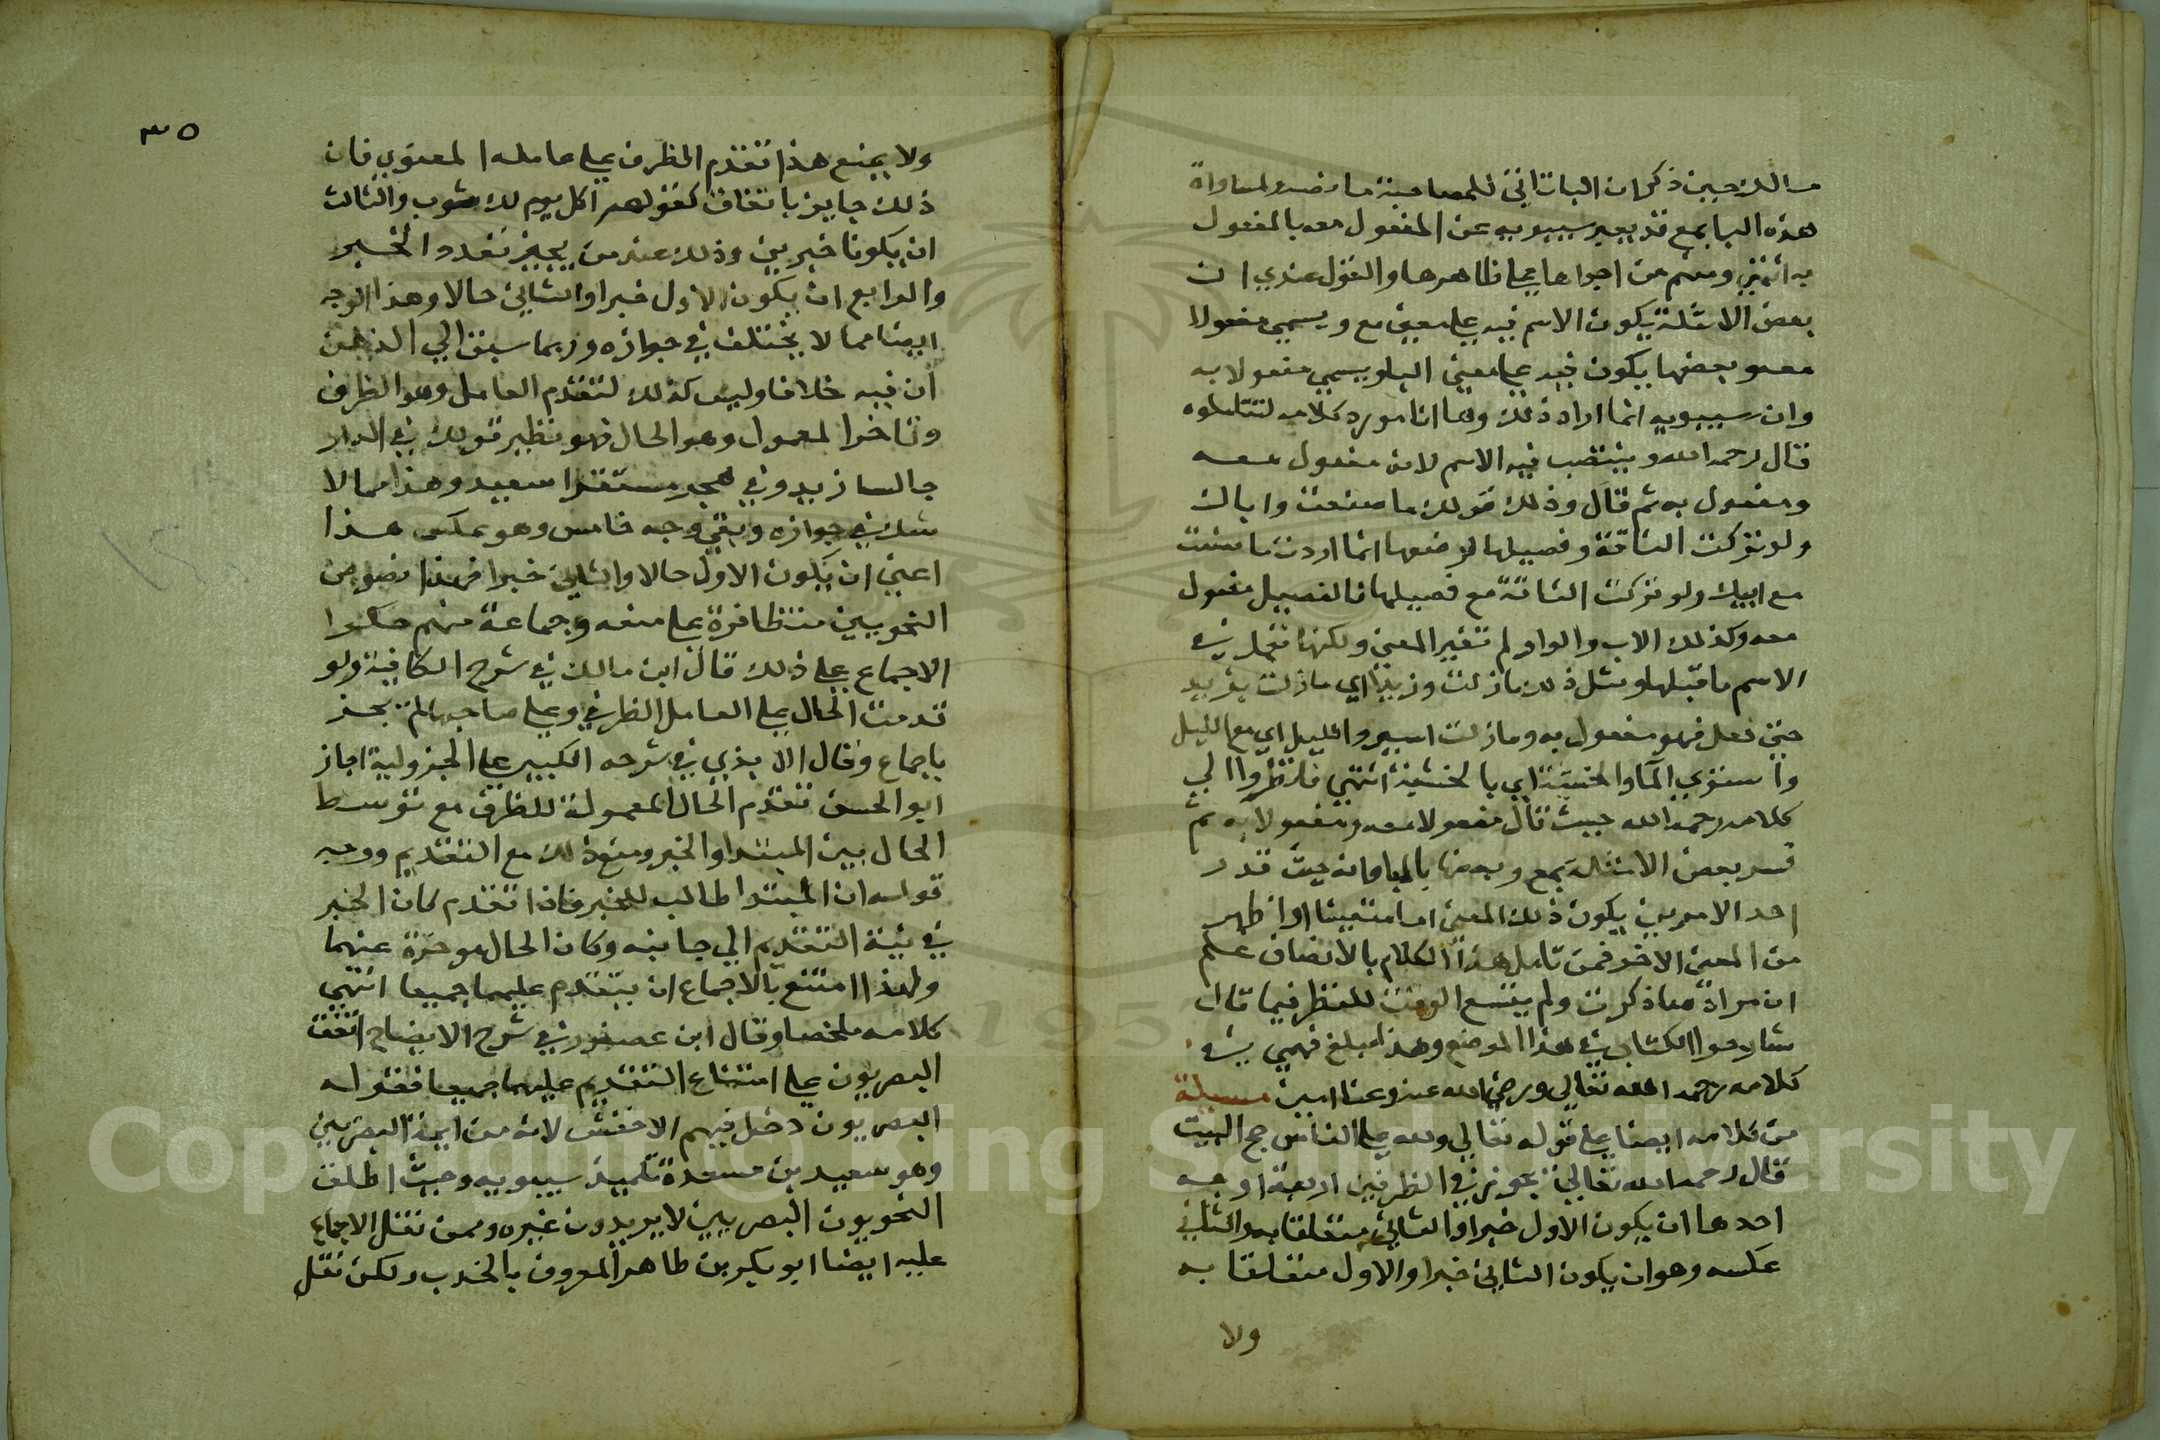 مالك حين ذكر ان الباء تاتي للمصاحبة ما نصه ولمساواة
هذه البا بمع قد يعبر سيبويه عن المفعول معه بالمفعول
به انتهي ومنهم من اجراها علي ظاهرها والقول عندي ان
بعض الامثلة يكون الاسم فيه علي معني مع ويسمي مفعولا
معه وبعضها يكون فيه علي معني البا ويسمي مفعولا به
وان سيبويه انما اراد ذلك وها انا مورد كلامه لتتاملوه
قال رحمه الله وينتصب فيه الاسم لانه مفعول معه
ومفعول به ثم قال وذلك قولك ما صنعت واباك
ولو تركت الناقة وفصيلها لرضعها انما اردت ما صنعت
مع ابيك ولو تركت الناقة مع فصيلها فالفصيل مفعول
معه وكذلك الاب والواو لم تغير المعني ولكنها تعمل في
الاسم ما قبلها ومثل ذلك ما زلت وزيدا اي ما زلت بزيد
حتي فعل فهو مفعول به وما زلت اسير والليل اي مع الليل
واستوي الما والخشبة اي بالخشبة انتهي فانظروا الي
كلامه رحمه الله حيث قال مفعولا معه ومفعولا به ثم
فسر بعض الامثلة بمع وبعضها بالبا وانه حيث قدر
احد الامرين يكون ذلك المعني اما متعينا او اظهر
من المعني الاخر فمن تامل هذا الكلام بالانصاف علم
ان مراده ما ذكرت ولم يتسع الوقت للنظر فيما قال
شارحوا الكتاب في هذا الموضع وهذا مبلغ فهمي في
كلامه رحمه الله تعالي ورضي الله عنه وعنا امين مسيلة
من كلامه ايضا علي قوله تعالي ولله علي الناس حج البيت
قال رحمه الله تعالي تجوز في الظرفين اربعة اوجه
احدها ان يكون الاول خبرا والثاني متعلقا به والثاني
عكسه وهو ان يكون الثاني خبرا والاول متعلقا به
ولا
٣٥
ولا يمنع هذا تقدم الظرف علي عامله المعنوي فان
ذلك جايز باتفاق كقولهم اكل يوم لك ثوب والثالث
ان يكونا خبرين وذلك عند من يجيز تعدد الخبر
والرابع ان يكون الاول خبرا والثاني حالا وهذا الوجه
ايضا مما لا يختلف في جوازه وربما سبق الي الذهن
ان فيه خلافا وليس كذلك لتقدم العامل وهو الظرف
وتاخر المعمول وهو الحال فهو نظير قولك في الدار
جالسا زيد وفي هجر مستقرا سعيد وهذا مما لا
شك في جوازه وبقي وجه خامس وهو عكس هذا
اعني ان يكون الاول حالا والثاني خبرا فهذا نصوص
النحويين متظافرة علي منعه وجماعة منهم حكوا
الاجماع علي ذلك قال ابن مالك في شرح الكافية ولو
قدمت الحال علي العامل الظرفي وعلي صاحبها لم يجز
باجماع وقال الابذي في شرحه الكبير علي الجزولية اجاز
ابو الحسن تقدم الحال المعمولة للظرف مع توسط
الحال بين المبتدا والخبر ومنع ذلك مع التقديم ووجه
قوله ان المبتدا طالب للخبر فاذا تقدم كان الخبر
في نية التقديم الي جانبه وكان الحال موخرة عنهما
ولهذا امتنع بالاجماع ان يتقدم عليهما جميعا انتهي
كلامه ملخصا وقال ابن عصفور في شرح الايضاح اتفق
البصريون علي امتناع التقديم عليهما جميعا فقوله
البصريون دخل فيهم الاخفش لانه من ايمة البصريين
وهو سعيد بن مسعدة تلميذ سيبويه وحيث اطلق
النحويون البصريين لا يريدون غيره وممن نقل الاجماع
عليه ايضا ابو بكر بن طاهر المعروف بالخدب ولكن نقل
Copyright © King Saud University
1957